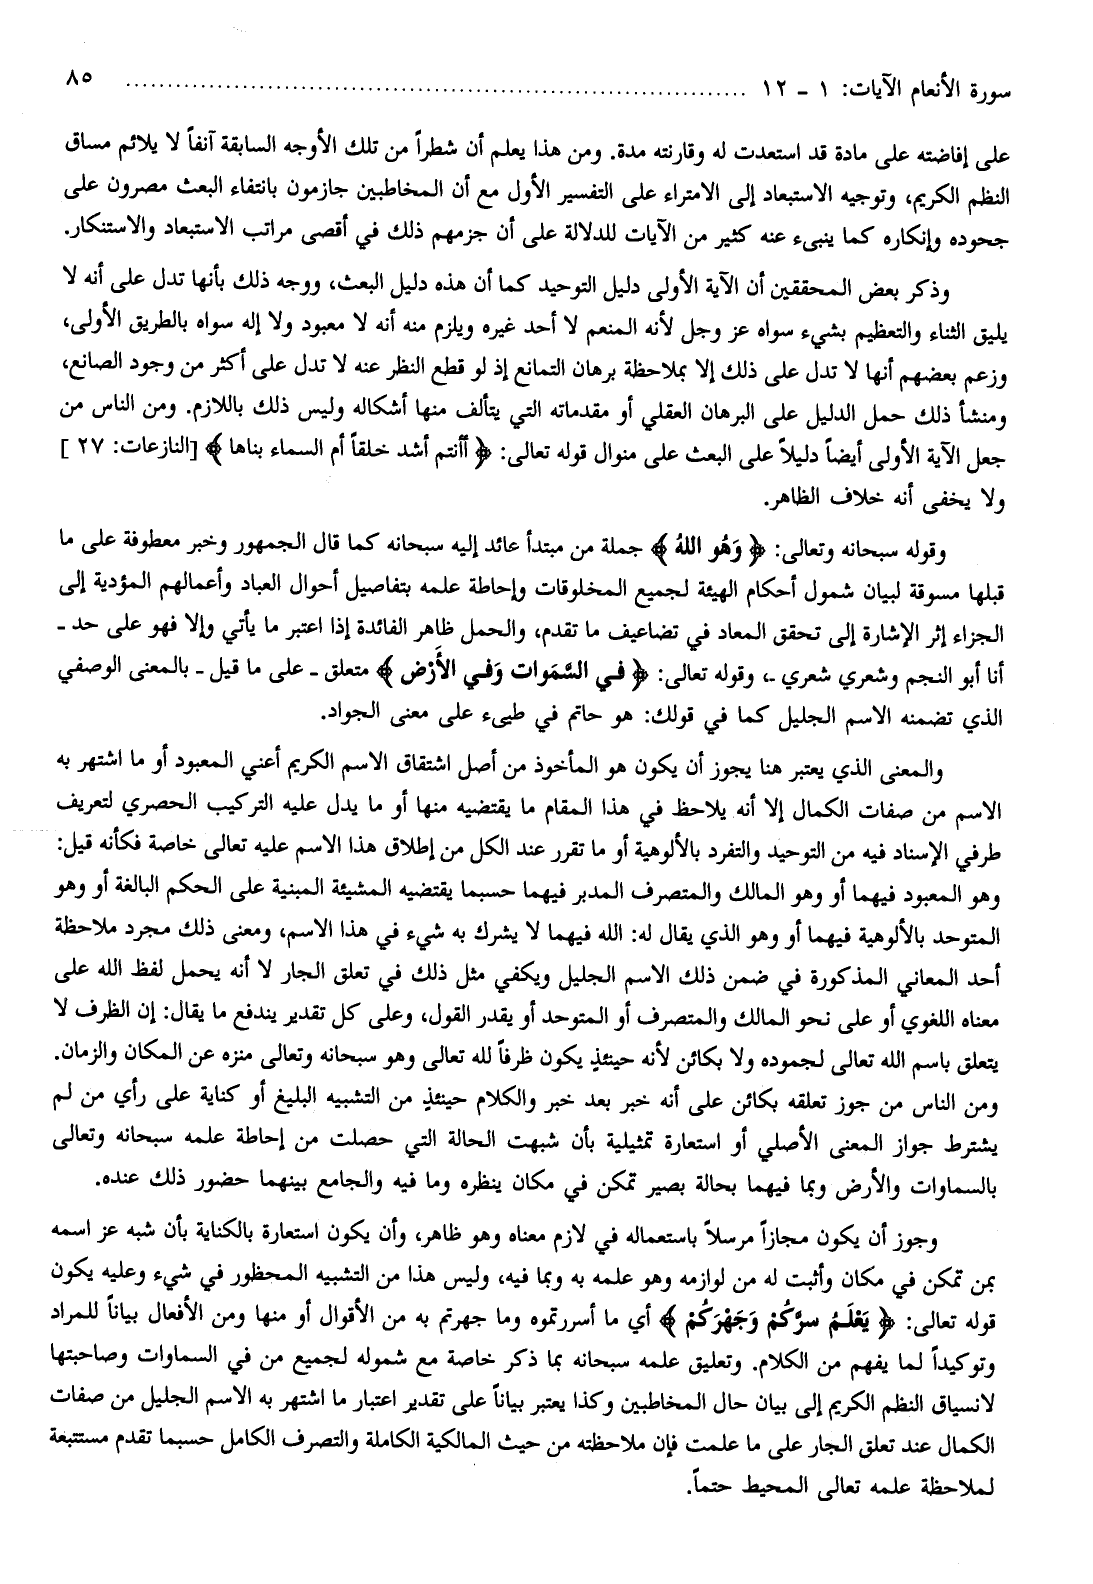 سورة الأنعام الآيات: ١ ـ ١٢ ........................................................................... ٨٥
على إفاضته على مادة قد استعدت له وقارنته مدة. ومن هذا يعلم أن شطراً من تلك الأوجه السابقة آنفاً لا يلائم مساق
النظم الكريم، وتوجيه الاستبعاد إلى الامتراء على التفسير الأول مع أن المخاطبين جازمون بانتفاء البعث مصرون على
جحوده وإنكاره كما ينبىء عنه كثير من الآيات للدلالة على أن جزمهم ذلك في أقصى مراتب الاستبعاد والاستنكار.
وذكر بعض المحققين أن الآية الأولى دليل التوحيد كما أن هذه دليل البعث، ووجه ذلك بأنها تدل على أنه لا
يليق الثناء والتعظيم بشيء سواه عز وجل لأنه المنعم لا أحد غيره ويلزم منه أنه لا معبود ولا إله سواه بالطريق الأولى،
وزعم بعضهم أنها لا تدل على ذلك إلا بملاحظة برهان التمانع إذ لو قطع النظر عنه لا تدل على أكثر من وجود الصانع،
ومنشأ ذلك حمل الدليل على البرهان العقلي أو مقدماته التي يتألف منها أشكاله وليس ذلك باللازم. ومن الناس من
جعل الآية الأولى أيضاً دليلاً على البعث على منوال قوله تعالى: ﴿ أأنتم أشد خلقاً أم السماء بناها ﴾ [النازعات: ٢٧ ]
ولا يخفى أنه خلاف الظاهر.
وقوله سبحانه وتعالى: ﴿ وَهُو اللهُ ﴾ جملة من مبتدأ عائد إليه سبحانه كما قال الجمهور وخبر معطوفة على ما
قبلها مسوقة لبيان شمول أحكام الهيئة لجميع المخلوقات وإحاطة علمه بتفاصيل أحوال العباد وأعمالهم المؤدية إلى
الجزاء إثر الإشارة إلى تحقق المعاد في تضاعيف ما تقدم، والحمل ظاهر الفائدة إذا اعتبر ما يأتي وإلا فهو على حد ـ
أنا أبو النجم وشعري شعري ـ، وقوله تعالى: ﴿ في السَّمَوات وَفي الأَرْض ﴾ متعلق ـ على ما قيل ـ بالمعنى الوصفي
الذي تضمنه الاسم الجليل كما في قولك: هو حاتم في طيىء على معنى الجواد.
والمعنى الذي يعتبر هنا يجوز أن يكون هو المأخوذ من أصل اشتقاق الاسم الكريم أعني المعبود أو ما اشتهر به
الاسم من صفات الكمال إلا أنه يلاحظ في هذا المقام ما يقتضيه منها أو ما يدل عليه التركيب الحصري لتعريف
طرفي الإسناد فيه من التوحيد والتفرد بالألوهية أو ما تقرر عند الكل من إطلاق هذا الاسم عليه تعالى خاصة فكأنه قيل:
وهو المعبود فيهما أو وهو المالك والمتصرف المدبر فيهما حسبما يقتضيه المشيئة المبنية على الحكم البالغة أو وهو
المتوحد بالألوهية فيهما أو وهو الذي يقال له: الله فيهما لا يشرك به شيء في هذا الاسم، ومعنى ذلك مجرد ملاحظة
أحد المعاني المذكورة في ضمن ذلك الاسم الجليل ويكفي مثل ذلك في تعلق الجار لا أنه يحمل لفظ الله على
معناه اللغوي أو على نحو المالك والمتصرف أو المتوحد أو يقدر القول، وعلى كل تقدير يندفع ما يقال: إن الظرف لا
يتعلق باسم الله تعالى لجموده ولا بكائن لأنه حينئذٍ يكون ظرفاً لله تعالى وهو سبحانه وتعالى منزه عن المكان والزمان.
ومن الناس من جوز تعلقه بكائن على أنه خبر بعد خبر والكلام حينئذٍ من التشبيه البليغ أو كناية على رأي من لم
يشترط جواز المعنى الأصلي أو استعارة تمثيلية بأن شبهت الحالة التي حصلت من إحاطة علمه سبحانه وتعالى
بالسماوات والأرض وبما فيهما بحالة بصير تمكن في مكان ينظره وما فيه والجامع بينهما حضور ذلك عنده.
وجوز أن يكون مجازاً مرسلاً باستعماله في لازم معناه وهو ظاهر، وأن يكون استعارة بالكناية بأن شبه عز اسمه
بمن تمكن في مكان وأثبت له من لوازمه وهو علمه به وبما فيه، وليس هذا من التشبيه المحظور في شيء وعليه يكون
قوله تعالى: ﴿ يَعْلَمُ سرَّكُمْ وَجَهْرَكُمْ ﴾ أي ما أسررتموه وما جهرتم به من الأقوال أو منها ومن الأفعال بياناً للمراد
وتوكيداً لما يفهم من الكلام. وتعليق علمه سبحانه بما ذكر خاصة مع شموله لجميع من في السماوات وصاحبتها
لانسياق النظم الكريم إلى بيان حال المخاطبين وكذا يعتبر بياناً على تقدير اعتبار ما اشتهر به الاسم الجليل من صفات
الكمال عند تعلق الجار على ما علمت فإن ملاحظته من حيث المالكية الكاملة والتصرف الكامل حسبما تقدم مستتبعة
لملاحظة علمه تعالى المحيط حتماً.